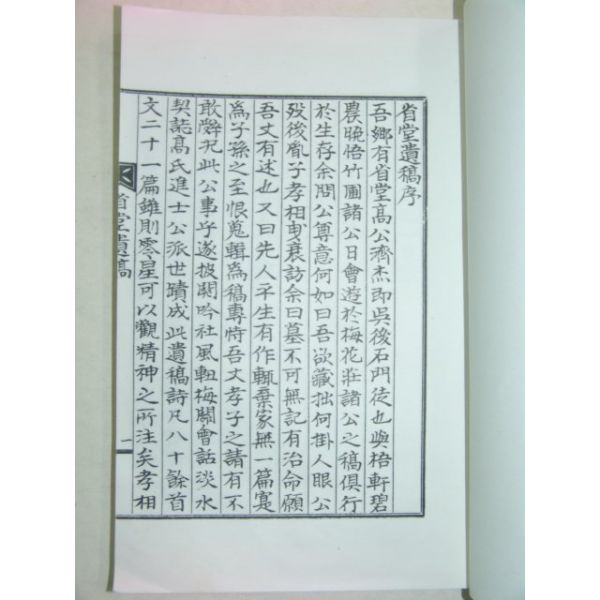 省堂遺稿序
吾鄕有省堂高公濟杰即吳後石門徒也與梧軒碧
農晩悟竹圃諸公日會遊於梅花莊諸公之稿俱行
於生存余問公尊意何如曰吾欲藏拙何掛人眼公
歿後胤子孝相甫衰訪余曰墓不可無記有治命願
吾丈有述也又曰先人平生有作輒棄家無一篇寔
爲子孫之至恨蒐輯爲稿專恃吾丈孝子之請有不
敢辭况此公事乎遂披閱吟社風軸梅關會話淡水
契誌高氏進士公派世蹟成此遺稿詩凡八十餘首
文二十一篇雖則零星可以觀精神之所注矣孝相
省堂遺稿
一